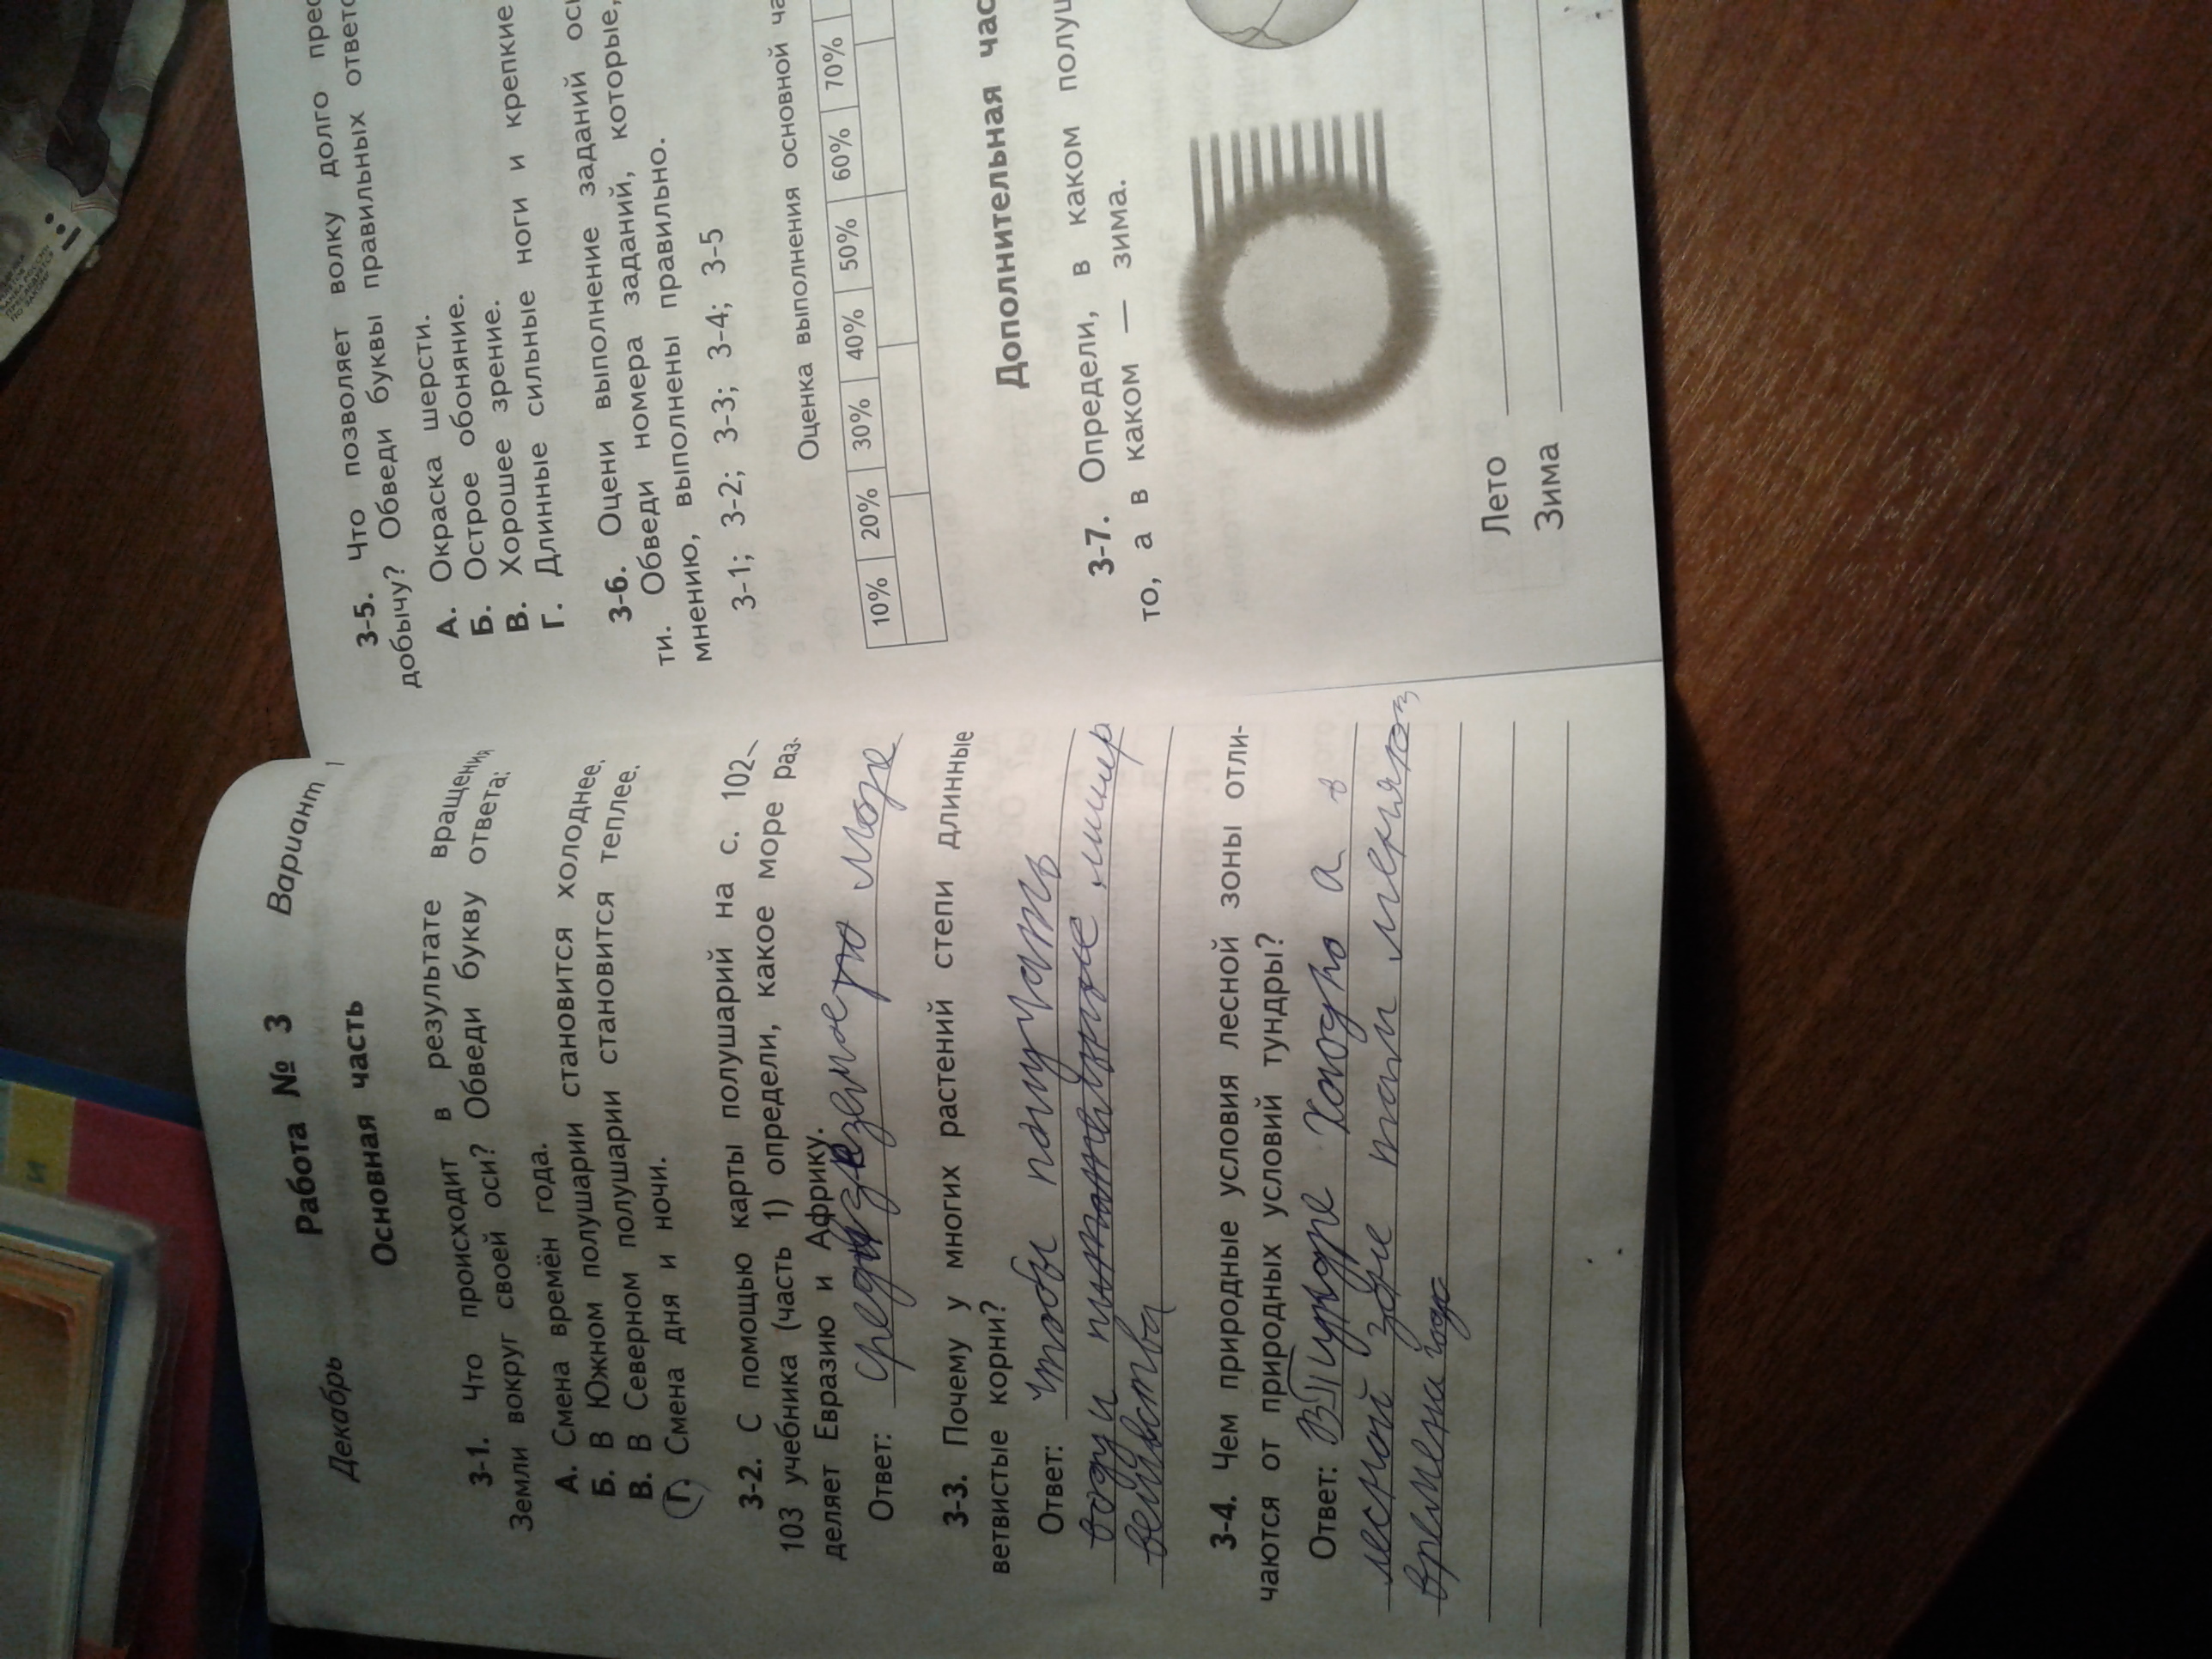 Декабрь
Работа № 3
Вариант 1
Основная часть
3-1. Что происходит в результате вращения
Земли вокруг своей оси? Обведи букву ответа:
А. Смена времён года.
Б. В Южном полушарии становится холоднее.
В. В Северном полушарии становится теплее.
Г. Смена дня и ночи.
3-2. С помощью карты полушарий на с. 102–
103 учебника (часть 1) определи, какое море раз-
деляет Евразию и Африку.
Ответ: море
3-3. Почему у многих растений степи длинные
ветвистые корни?
Ответ: чтобы получать
воду и
вещества
3-4. Чем природные условия лесной зоны отли-
чаются от природных условий тундры?
Ответ: В Тундре холодно а в
лесной зоне там
времена года
3-5. Что позволяет волку долго
добычу? Обведи буквы правильных
А. Окраска шерсти.
Б. Острое обоняние.
В. Хорошее зрение.
Г. Длинные сильные ноги и крепкие
3-6. Оцени выполнение заданий
ти. Обведи номера заданий, которые,
мнению, выполнены правильно.
3-1; 3-2; 3-3; 3-4; 3-5
Оценка выполнения основной
10% 20% 30% 40% 50% 60% 70%
Дополнительная
3-7. Определи, в каком
то, а в каком — зима.
Лето
Зима